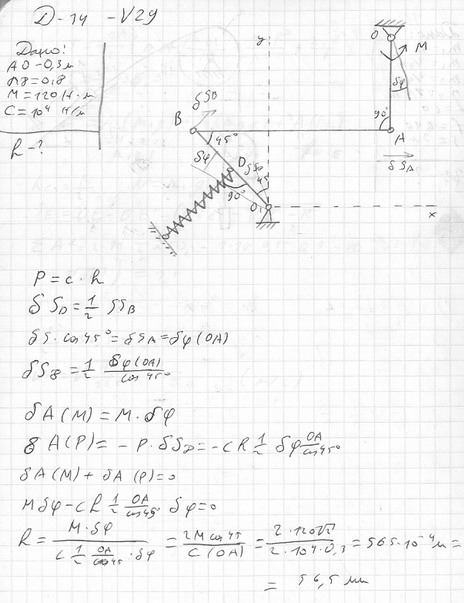 D-14 -V29
Дано:
AO=0,3м
M=120 Н·м
C=10⁴ Н/м
h-?
y
O
M
δφ
90°
A
δS_A
δS_B
B
45°
δφ
D
δS_D
45
90°
O₁
x
P=c·h
δS_D=1/2 δS_B
δS·cos45°=δS_A=δφ(OA)
δS_B=1/2 δφ(OA)/cos45°
δA(M)=M·δφ
δA(P)=-P·δS_D=-ch 1/2 δφ OA/cos45°
δA(M)+δA(P)=0
Mδφ-ch 1/2 OA/cos45° δφ=0
h= M·δφ / c 1/2 OA/cos45 ·δφ = 2M cos45 / C(OA) = 2·120√2 / 2·10⁴·0,3 =565·10⁻⁴м=
= 56,5 мм